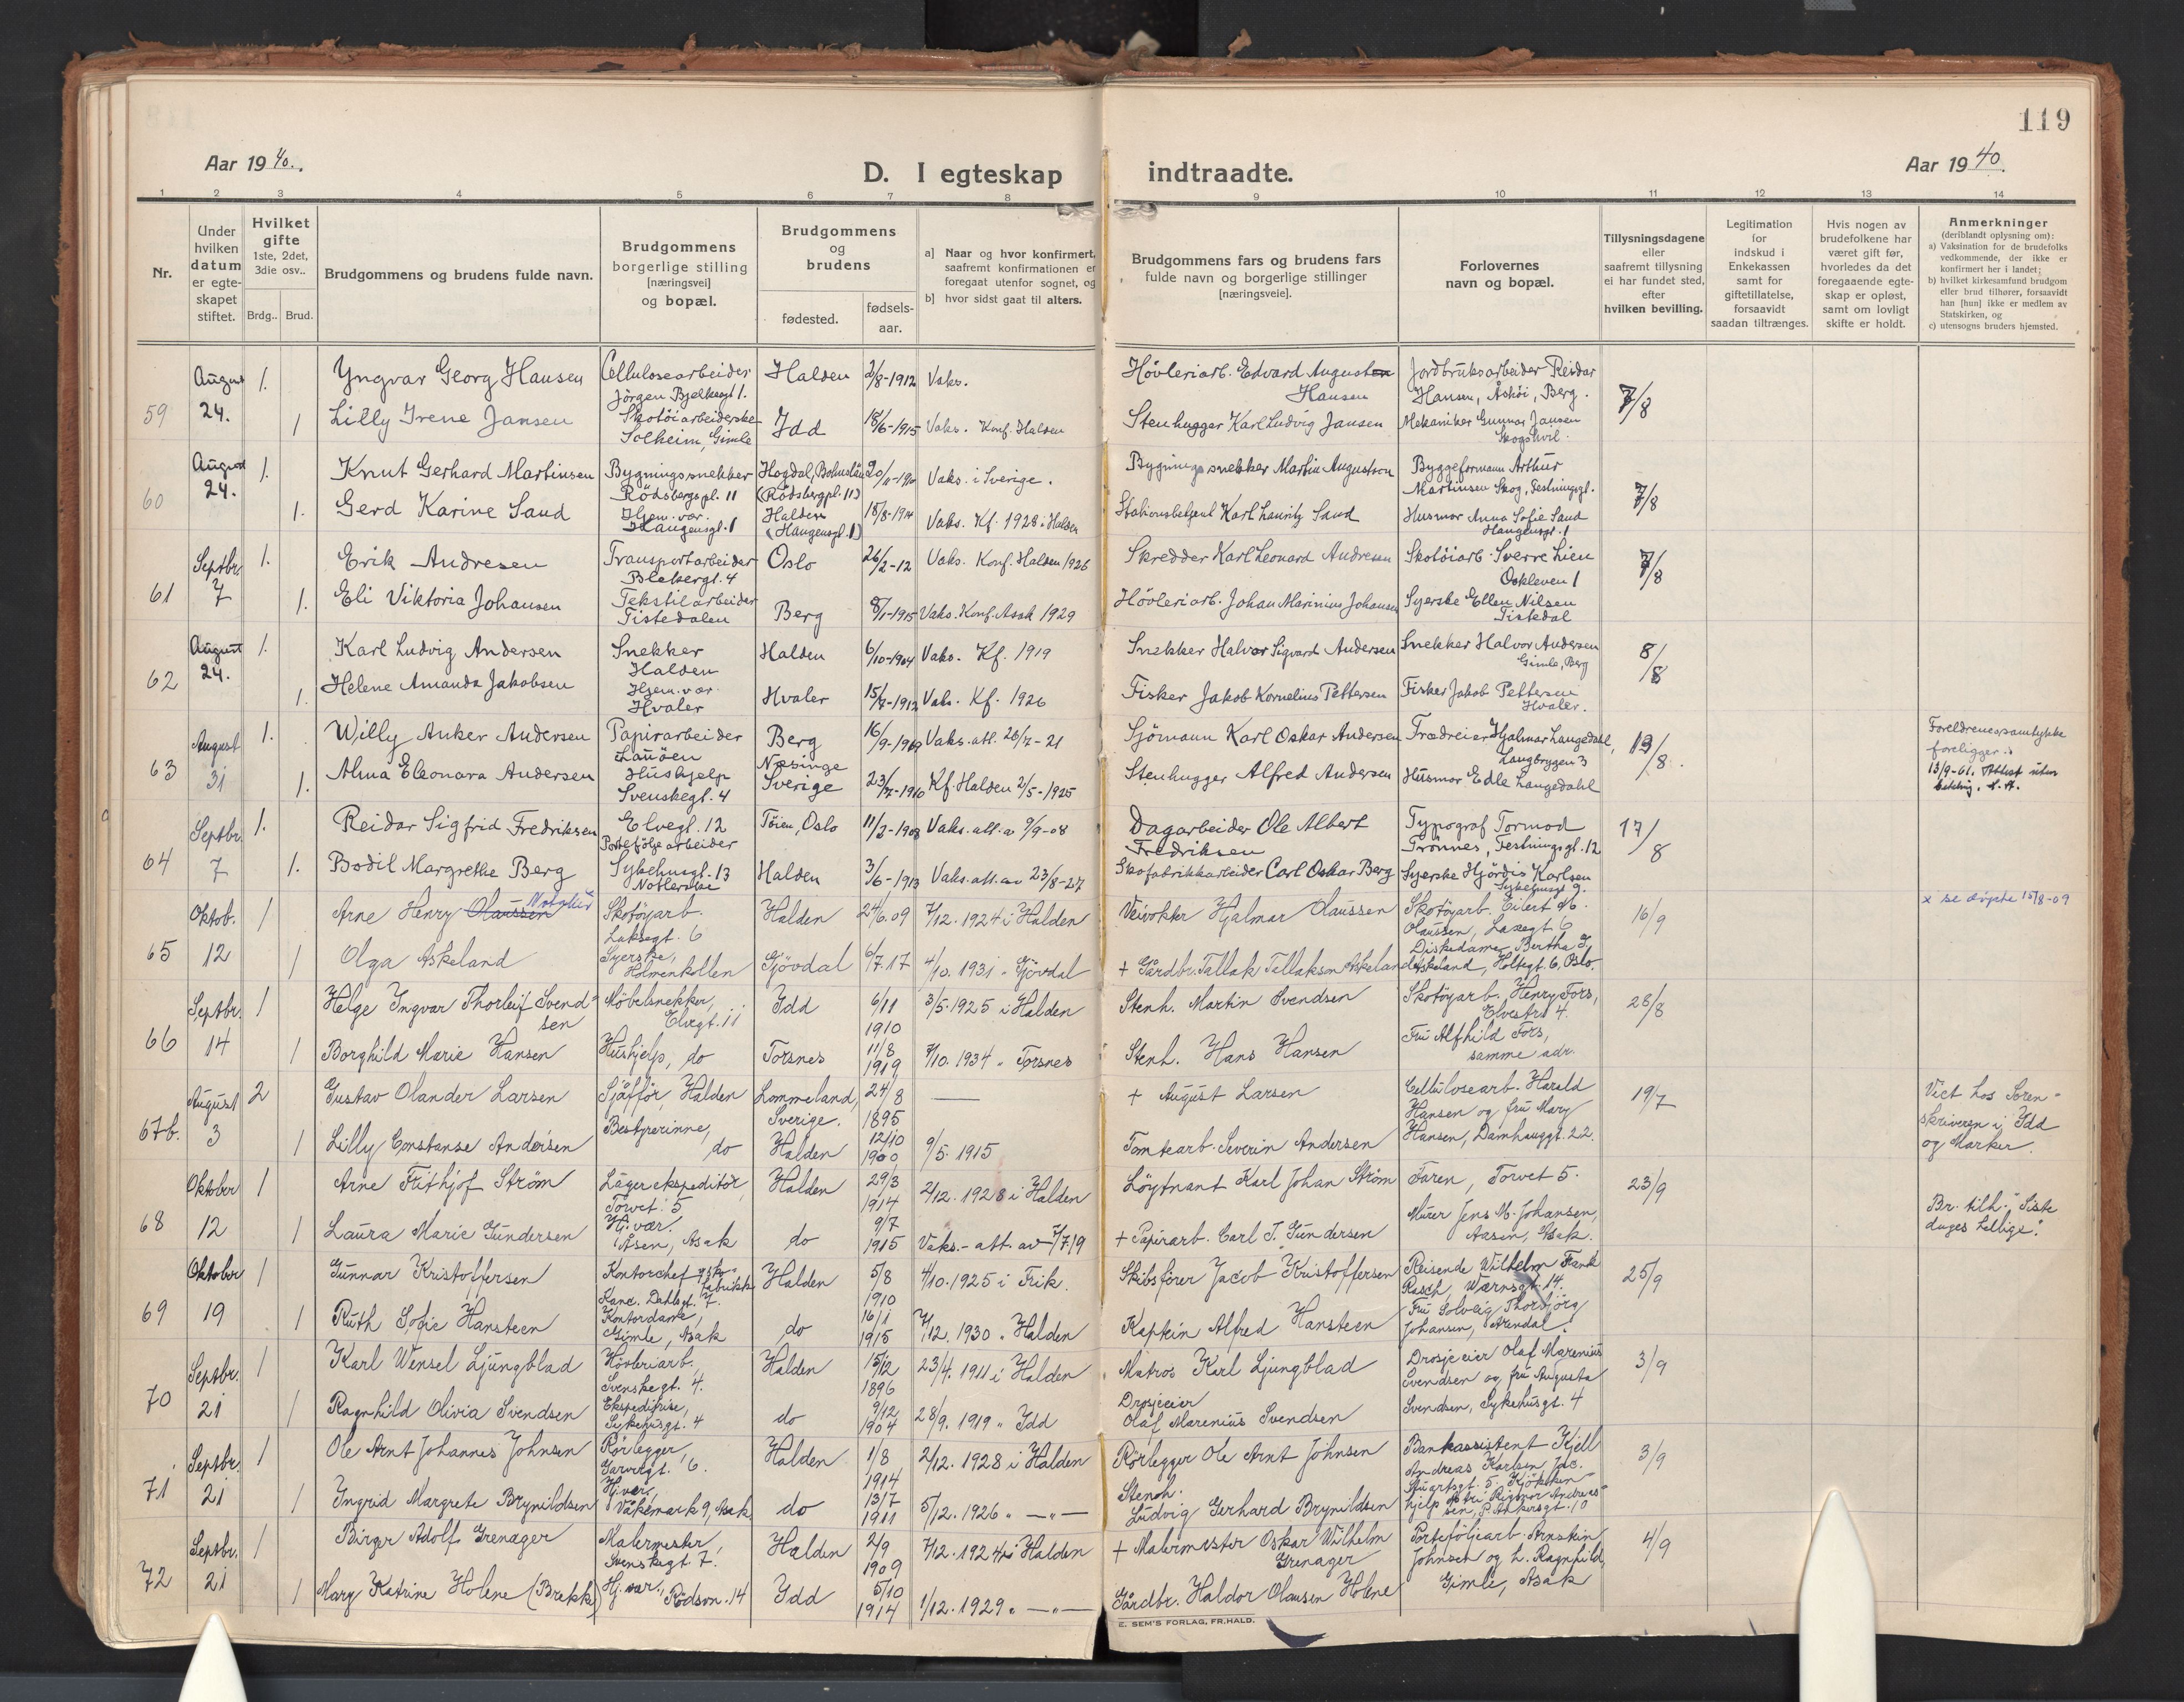 119
Aar 1940.
D. I egteskap indtraadte.
Aar 1940.
1 2 3 4 5 6 7 8 9 10 11 12 13 14
Nr.
Under hvilken datum er egteskapet stiftet.
Hvilket gifte 1ste, 2det, 3die osv..
Brdg.. Brud.
Brudgommens og brudens fulde navn.
Brudgommens borgerlige stilling [næringsvei] og bopæl.
Brudgommens og brudens
fødested.
fødsels-aar.
a] Naar og hvor konfirmert, saafremt konfirmationen er foregaat utenfor sognet, og
b] hvor sidst gaat til alters.
Brudgommens fars og brudens fars fulde navn og borgerlige stillinger [næringsveie].
Forlovernes navn og bopæl.
Tillysningsdagene eller saafremt tillysning ei har fundet sted, efter hvilken bevilling.
Legitimation for indskud i Enkekassen samt for giftetillatelse, forsaavidt saadan tiltrænges.
Hvis nogen av brudefolkene har været gift før, hvorledes da det foregaaende egteskap er opløst, samt om lovligt skifte er holdt.
Anmerkninger (deriblandt oplysning om):
a) Vaksination for de brudefolks vedkommende, der ikke er konfirmert her i landet;
b) hvilket kirkesamfund brudgom eller brud tilhører, forsaavidt han [hun] ikke er medlem av Statskirken, og
c) utensogns bruders hjemsted.
59 August 24. 1. Yngvar Georg Hansen Cellulosearbeider Jörgen Bjelkesgt 1. Halden 2/8-1912 Vaks. Hövleriarb. Edvard August Hansen Jordbruksarbeider Reidar Hansen, Berg. 7/8
1 Lilly Irene Jansen Skotöiarbeiderske Solheim, Gimle Idd 18/6-1915 Vaks. Konf. Halden Stenhugger Karl Ludvig Jansen Mekaniker Gunnar Jansen Skogshvil.
60 August 24. 1. Knut Gerhard Martinsen Bygningssnekker Rödsbergspl. 11 Hogdal, Bohuslän (Rödsbergpl. 11) Vaks. i Sverige. Bygningssnekker Martin Augustson Byggeformann Arthur Martinsen Skog, Festningsgt. 7/8
1. Gerd Karine Sand Hjem. vær. Haugensgt. 1 Halden (Haugensgt. 1) 18/8-1914 Vaks. Kf. 1928 i Halden Stationsbetjent Karl Lauritz Sand Husmor Anna Sofie Sand Haugensgt. 1
61 Septbr. 7 1. Erik Andresen Transportarbeider Blekergt. 4 Oslo 26/2-12 Vaks. Konf. Halden 1926 Skredder Karl Leonard Andresen Skotöiarb. Sverre Lien Oskleven 1 7/8
1. Eli Viktoria Johansen Tekstilarbeider Tistedalen Berg 8/1-1915 Vaks. Konf. Asak 1929 Hövleriarb. Johan Marinius Johansen Syerske Ellen Nilsen Tistedal
62 August 24. 1. Karl Ludvig Andersen Snekker Halden Halden 6/10-1904 Vaks. Kf. 1919 Snekker Halvor Sigvard Andersen Snekker Halvor Andersen Gimle, Berg 8/8
1. Helene Amanda Jakobsen Hjem. vær. Hvaler Hvaler 15/7-1912 Vaks. Kf. 1926 Fisker Jakob Kornelius Pettersen Fisker Jakob Pettersen Hvaler.
63 August 31 1. Willy Anker Andersen Papirarbeider Berg 16/9-1919 Vaks. att. 26/7-21 Sjömann Karl Oskar Andersen Trædreier Hjalmar Langedahl, Langbryggen 3 13/8. Foreldrenes samtykke foreligger.
13/9-61. Attest uten
1. Alma Eleonora Andersen Hushjelp Svenskegt. 4 Næsinge Sverige 23/7-1910 Kf. Halden 2/5-1925 Stenhugger Alfred Andersen Husmor Edle Langedahl
64 Septbr. 7 1. Reidar Sigfrid Fredriksen Elvegt. 12 Portefölgearbeider Töien, Oslo 11/3-1908 Vaks. att. av 9/9-08 Dagarbeider Ole Albert Fredriksen Typograf Tormod Trönnes, Festningsgt. 12 17/8
1. Bodil Margrethe Berg Sykehusgt. 13 Halden 3/6-1913 Vaks. att. av 23/8-27 Skofabrikkarbeider Carl Oskar Berg Syerske Hjördis Karlsen Sykehusgt 9.
65 Oktob. 12 1 Arne Henry Olaussen Skotöyarb. Laksegt. 6 Halden 24/6.09 7/12. 1924 i Halden Veivokter Hjalmar Olaussen Skotöyarb. Eilert M. Olaussen, Laxegt 6 16/9 x se döpte 15/8-09
1 Olga Askeland Syerske, Holmenkollen Gjövdal 6/7.17 4/10. 1931 " Gjövdal + Gårdbr. Tallak Tellaksen Askeland Diskedame Bertha J. Askeland, Holtegt. 6, Oslo.
66 Septbr. 14 1 Helge Ingvar Thorleif Svendsen Möbelsnekker, Elvegt. 11 Idd 6/11 1910 3/5. 1925 i Halden Stenh. Martin Svendsen Skotöyarb. Henry Fors, Elvestr. 4. 28/8
1 Borghild Marie Hansen Hushjelp, do Torsnes 11/8 1919 7/10. 1934 " Torsnes Stenh. Hans Hansen Fru Alfhild Fors, samme adr.
67b. August 3 2 Gustav Olander Larsen Sjåfför, Halden Lommeland, Sverige. 24/8 1895 — + August Larsen Cellulosearb. Harald Hansen og fru Mary Hansen, Damhauggt. 22. 19/7 Viet hos Sorenskriveren i Idd og Marker.
1 Lilly Constanse Andersen Bestyrerinne, do Halden 12/10 1900 9/5. 1915 Tomtearb. Severin Andersen
68 Oktober 12 1 Arne Frithjof Ström Lagerekspeditör, Torvet 5 Halden 29/3 1914 2/12. 1928 i Halden Löytnant Karl Johan Ström Faren, Torvet 5. 23/9
1 Laura Marie Gundersen Hj. vær. Åsen, Asak do 9/7 1915 Vaks.-att. av 7/7 19 + Papirarb. Carl J. Gundersen Murer Jens M. Johansen, Aasen, Asak. Br. tilh. "Siste dages hellige".
69 Oktober 19 1 Gunnar Kristoffersen Kontorchef skofabrikk Kanc. Dahlsgt. 7. Halden 5/8 1910 4/10. 1925 i Frik. Skibsförer Jacob Kristoffersen Reisende Wilhelm Frank Rasch, Wærnsgt. 14. 25/9
1 Ruth Sofie Hansteen Kontordame, Gimle, Asak do 16/1 1915 7/12. 1930 " Halden Kaptein Alfred Hansteen Fru Solveig Thorbjörg Johansen, Arendal.
70 Septbr. 21 1 Karl Wensel Ljungblad Hövleriarb. Svenskegt. 4. Halden 15/12 1896 23/4. 1911 i Halden Matros Karl Ljungblad Drosjeeier Olaf Marenius Svendsen og fru Augusta Svendsen, Sykehusgt. 4 3/9
1 Ragnhild Olivia Svendsen Ekspeditrise, Sykehusgt. 4 do 9/12 1904 28/9. 1919 " Idd Drosjeeier Olaf Marenius Svendsen
71 Septbr. 21 1 Ole Arnt Johannes Johnsen Rörlegger Garvergt. 6. Halden 1/8 1914 2/12. 1928 i Halden Rörlegger Ole Arnt Johnsen Bankassistent Kjell Andreas Karlsen, Stuartsgt. 5. 3/9
1 Ingrid Margrete Brynildsen Hj. vær., Vakemark 9, Asak do 13/7 1911 5/12. 1926 " —"— Stenh. Ludvig Gerhard Brynildsen Kjökkenhjelp Rigmor Andreassen, P. Ankersgt. 10
72 Septbr. 21 1 Birger Adolf Grenager Malermester, Svenskegt. 7. Halden 2/9 1909 7/12. 1924 i Halden + Malermester Oskar Wilhelm Grenager Porteföljearb. Arnstein Johnsen og h. Ragnhild, Gimle, Asak 4/9
1 Mary Katrine Holene (Brekke) Hj. vær., Rödsv. 14 Idd 5/10 1914 1/12. 1929 " —"— Gårdbr. Haldor Olausen Holene
E. SEM'S FORLAG, FR.HALD.